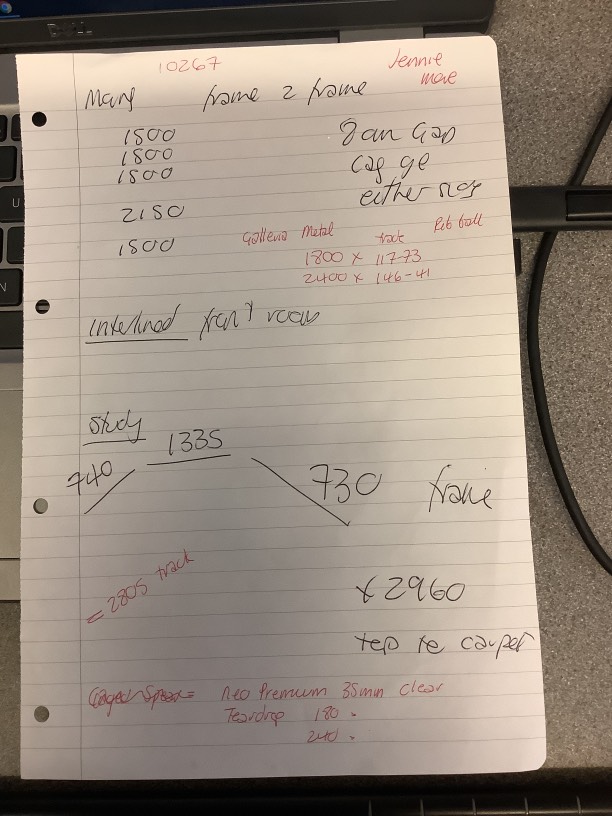 DELL
10267
Jennie
more
Mary frame 2 frame
1500
1500
1500
2150
1500
8cm Gap
either
Galleria Metal track Rib ball
1800 × 117-73
2400 × 146-41
interlined front room
Study
740
1335
730 frame
= 2805 track
x 2960
top to carpet
Neo Premium 35mm clear
Teardrop 180.
240.